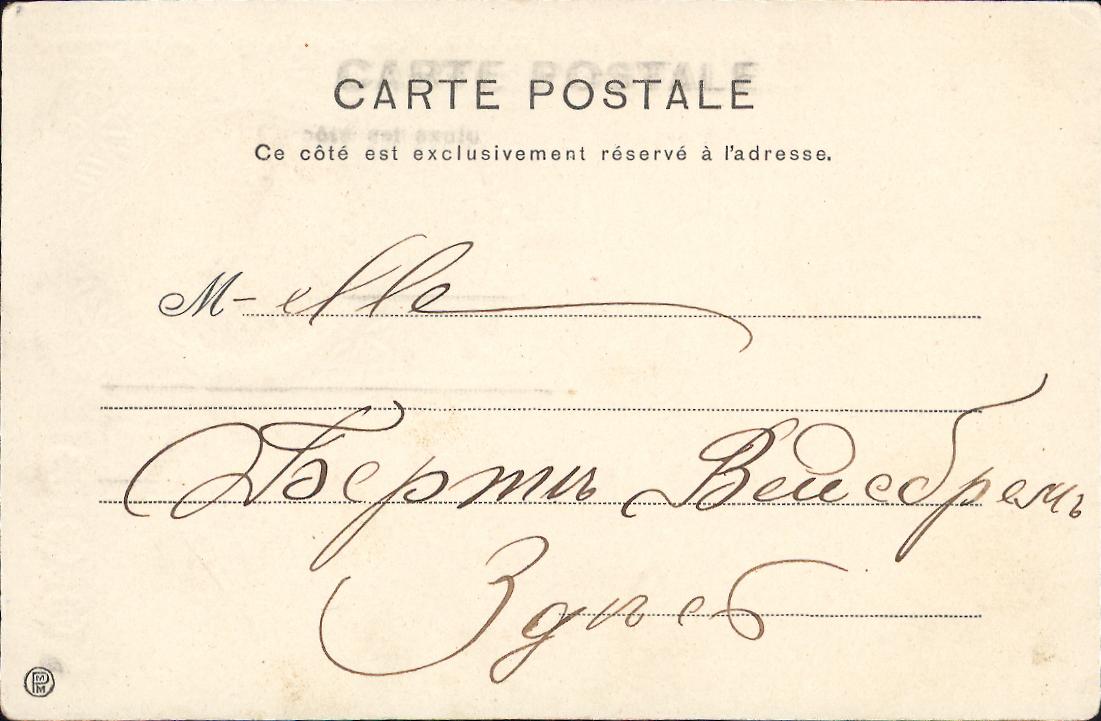 CARTE POSTALE
Ce côté est exclusivement réservé à l'adresse.
M-elle
Бертѣ Вейсбремъ
Здѣсь